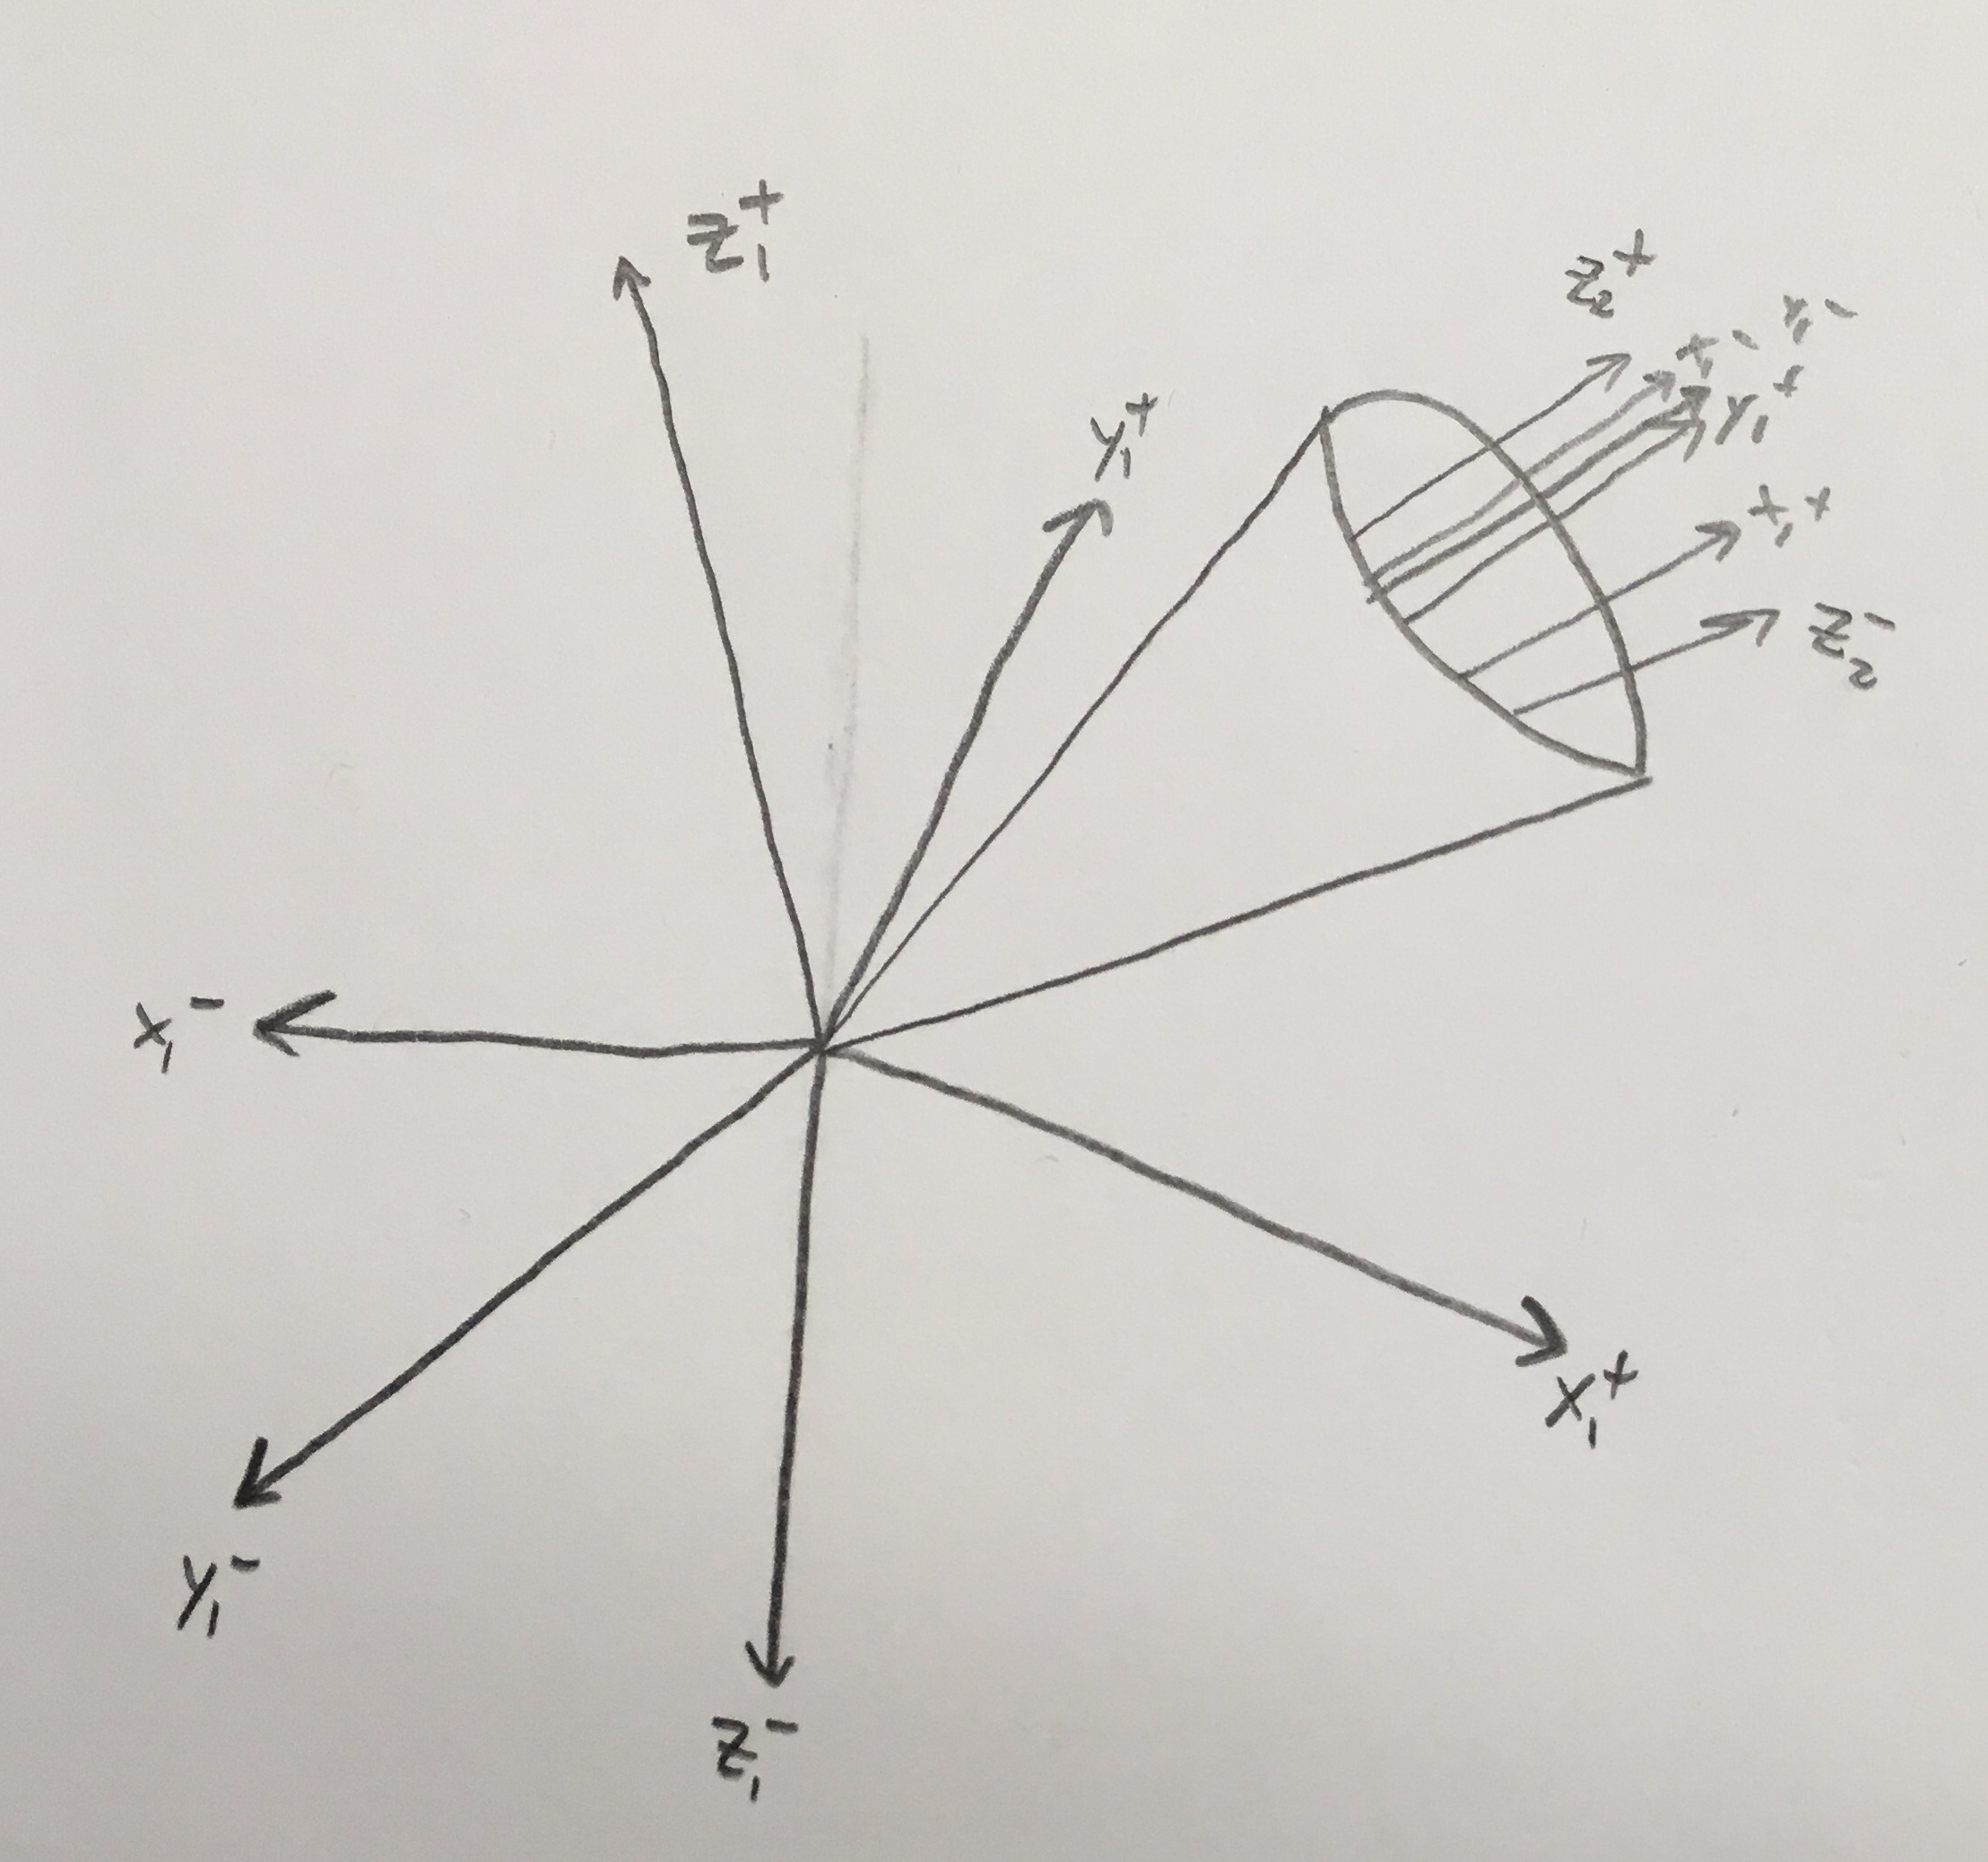 z₁⁺
z₂⁺
x₁⁻ y₁⁻
y₁⁺
y₁⁺
x₁⁺
z₂⁻
x₁⁻
x₁⁺
y₁⁻
z₁⁻